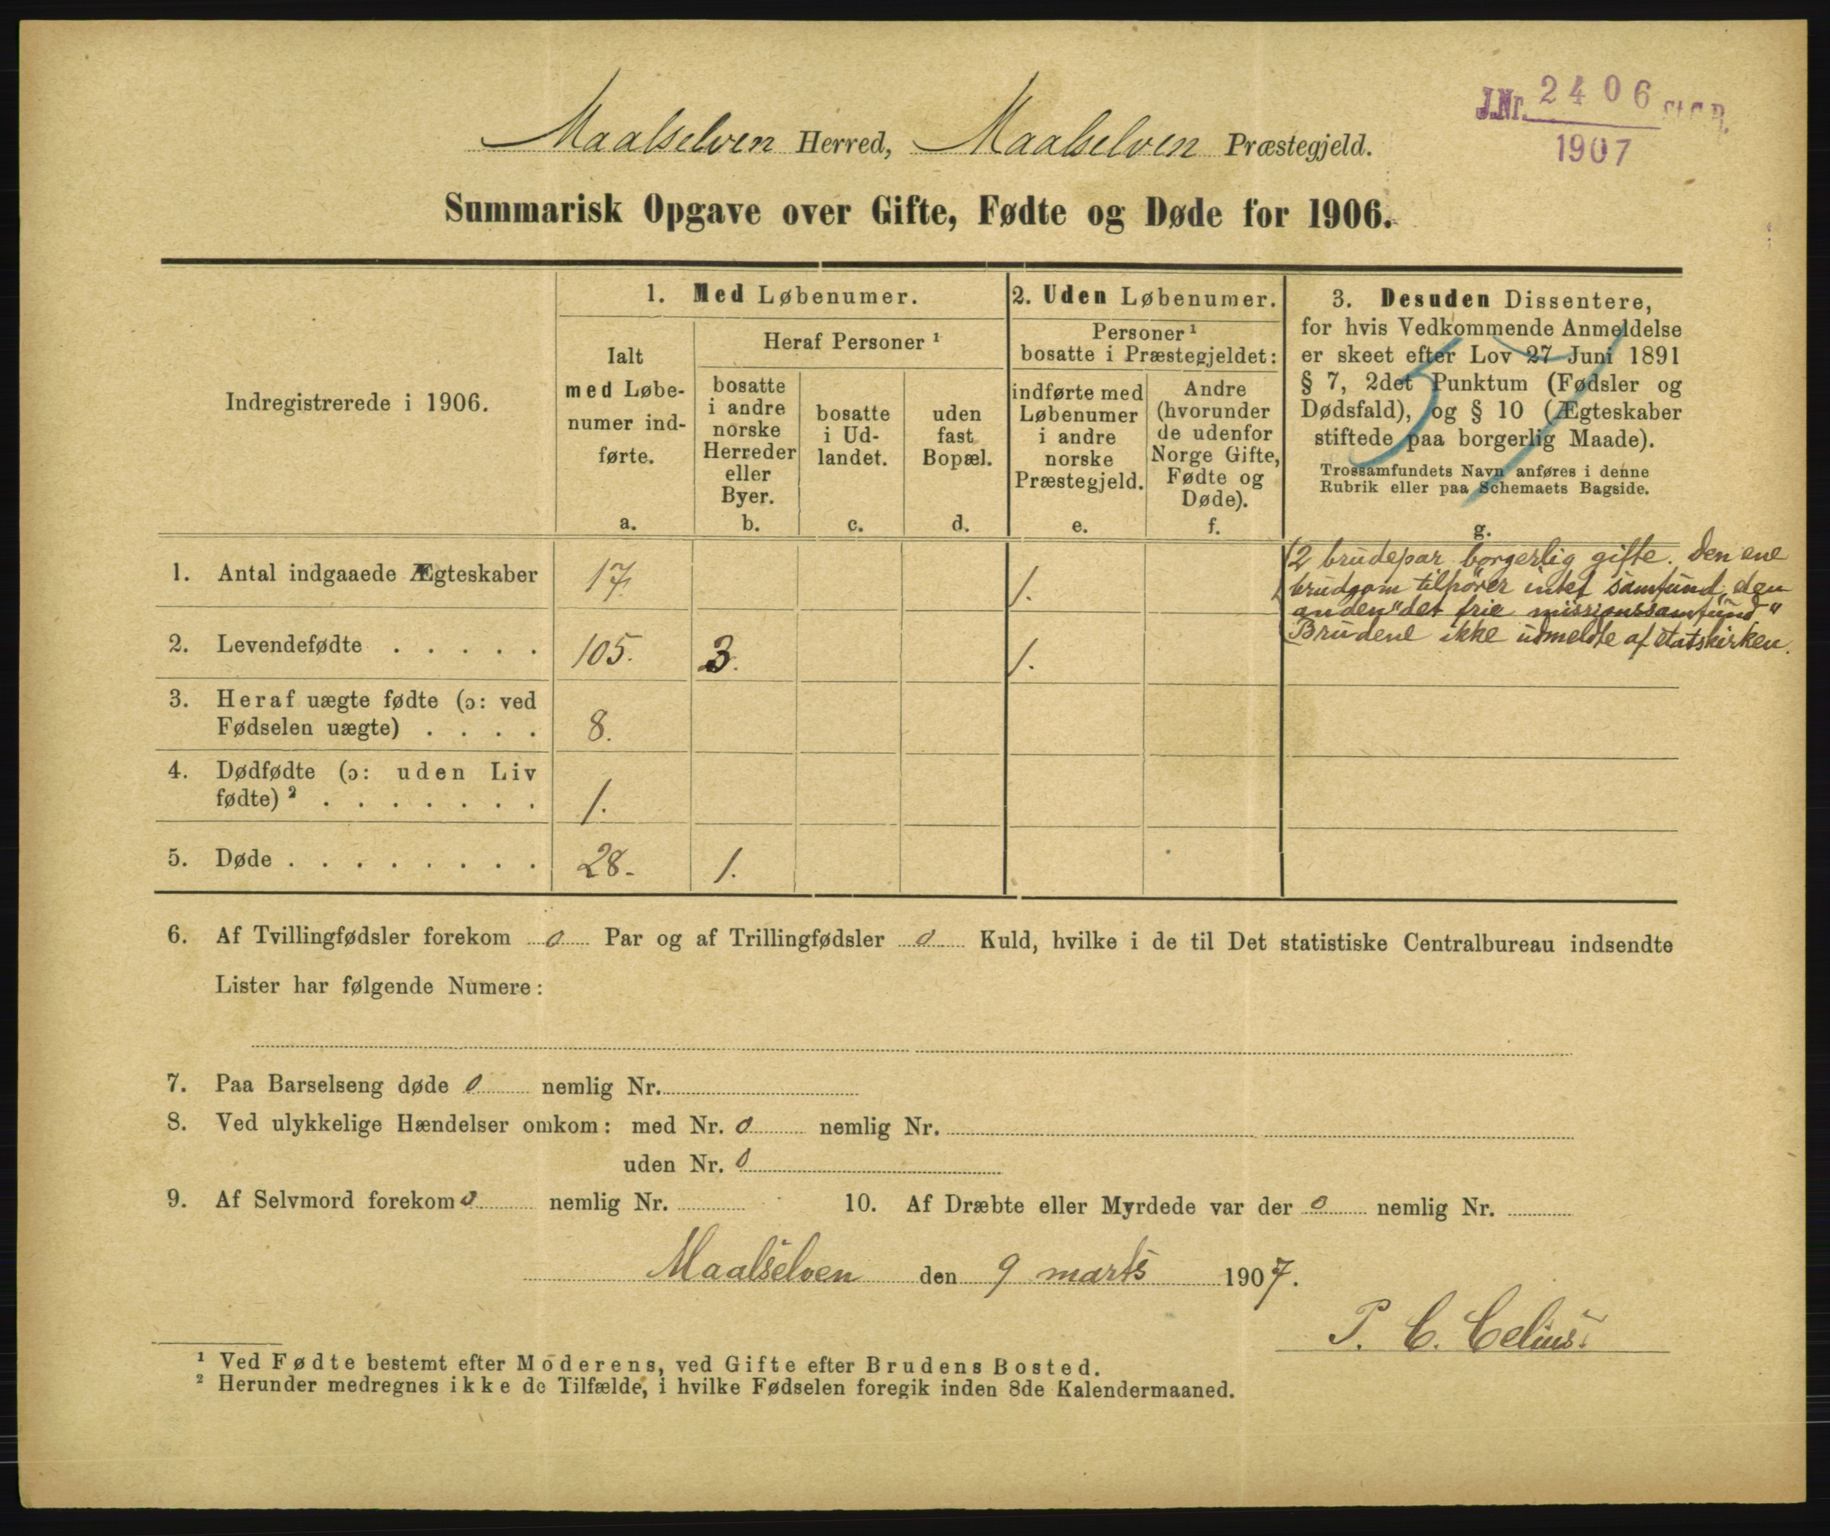 J.Nr. 2406 St.C.B.
1907
Maalselven Herred, Maalselven Præstegjeld.
Summarisk Opgave over Gifte, Fødte og Døde for 1906.
Indregistrerede i 1906.
1. Med Løbenumer.
Ialt
med Løbe-
numer ind-
førte.
a.
Heraf Personer ¹
bosatte
i andre
norske
Herreder
eller
Byer.
b.
bosatte
i Ud-
landet.
c.
uden
fast
Bopæl.
d.
2. Uden Løbenumer.
Personer ¹
bosatte i Præstegjeldet:
indførte med
Løbenumer
i andre
norske
Præstegjeld.
e.
Andre
(hvorunder
de udenfor
Norge Gifte,
Fødte og
Døde).
f.
3. Desuden Dissentere,
for hvis Vedkommende Anmeldelse
er skeet efter Lov 27 Juni 1891
§ 7, 2det Punktum (Fødsler og
Dødsfald), og § 10 (Ægteskaber
stiftede paa borgerlig Maade).
Trossamfundets Navn anføres i denne
Rubrik eller paa Schemaets Bagside.
g.
1. Antal indgaaede Ægteskaber 17. 1.
2 brudepar borgerlig gifte. Den ene
brudgom tilhører intet samfund, den
anden "det frie missionssamfund"
Brudene ikke udmeldte af statskirken.
2. Levendefødte . . . . . 105. 3. 1.
3. Heraf uægte fødte (ɔ: ved
Fødselen uægte) . . . . 8.
4. Dødfødte (ɔ: uden Liv
fødte) ² . . . . . . . 1.
5. Døde . . . . . . . . 28. 1.
6. Af Tvillingfødsler forekom 0 Par og af Trillingfødsler 0 Kuld, hvilke i de til Det statistiske Centralbureau indsendte
Lister har følgende Numere:
7. Paa Barselseng døde 0 nemlig Nr.
8. Ved ulykkelige Hændelser omkom: med Nr. 0 nemlig Nr.
uden Nr. 0
9. Af Selvmord forekom 0 nemlig Nr. 10. Af Dræbte eller Myrdede var der 0 nemlig Nr.
Maalselven den 9 marts 1907.
P. C. Celius.
¹ Ved Fødte bestemt efter Moderens, ved Gifte efter Brudens Bosted.
² Herunder medregnes ikke de Tilfælde, i hvilke Fødselen foregik inden 8de Kalendermaaned.